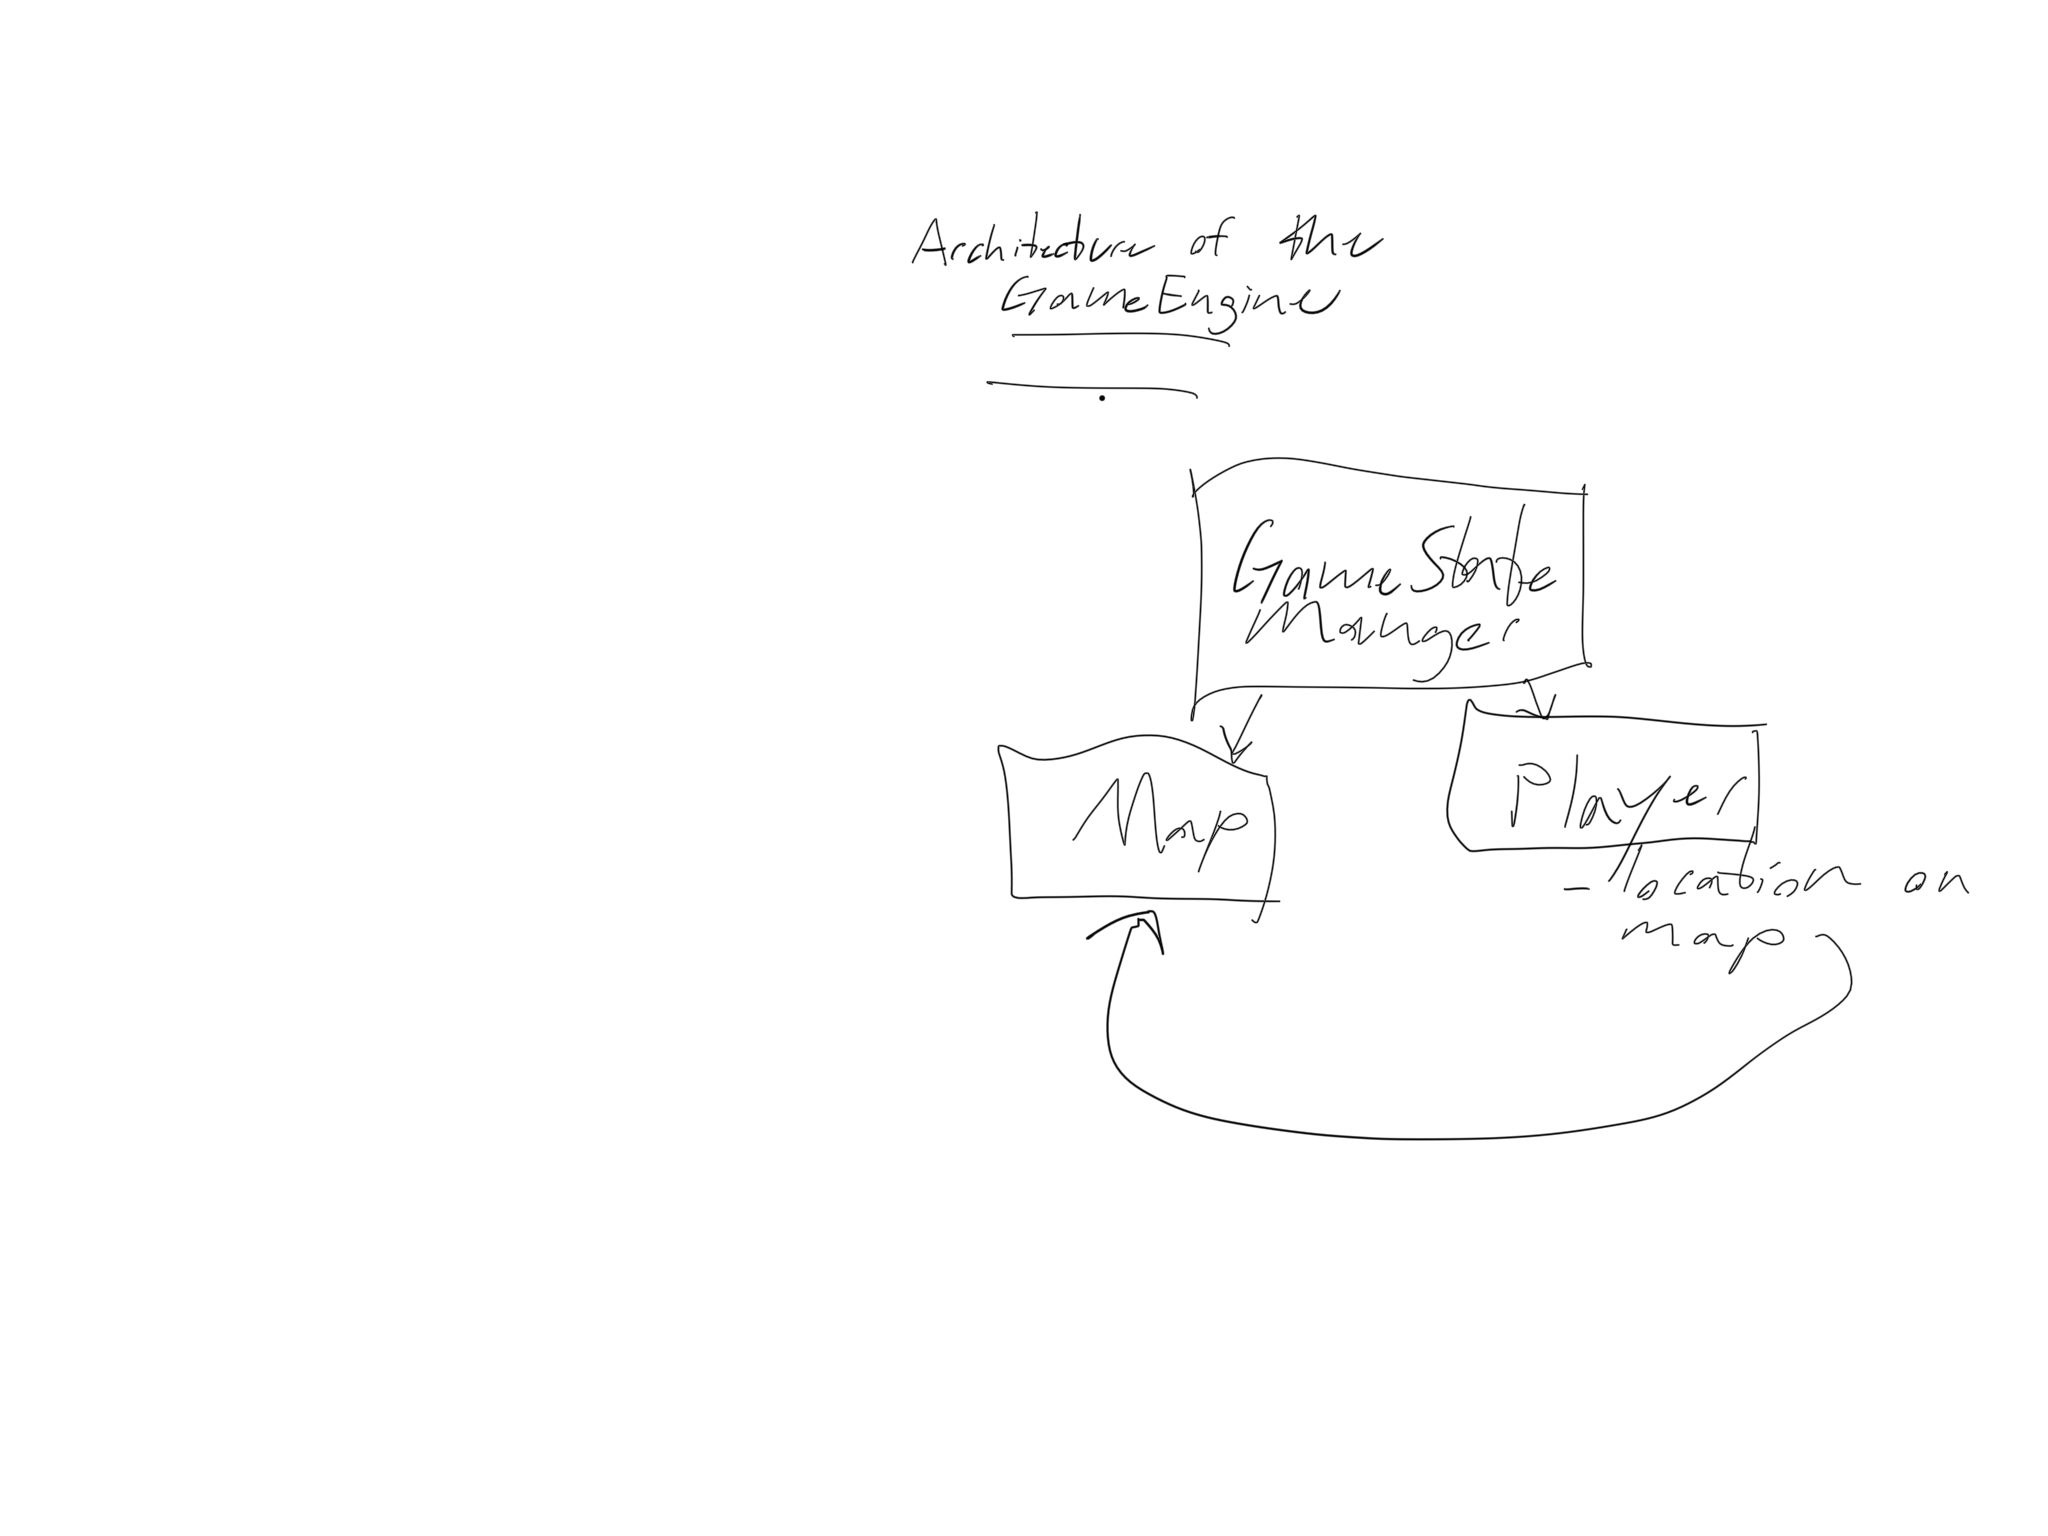 Architecture of the
GameEngine
GameState
Manger
Map
Player
- location on
map